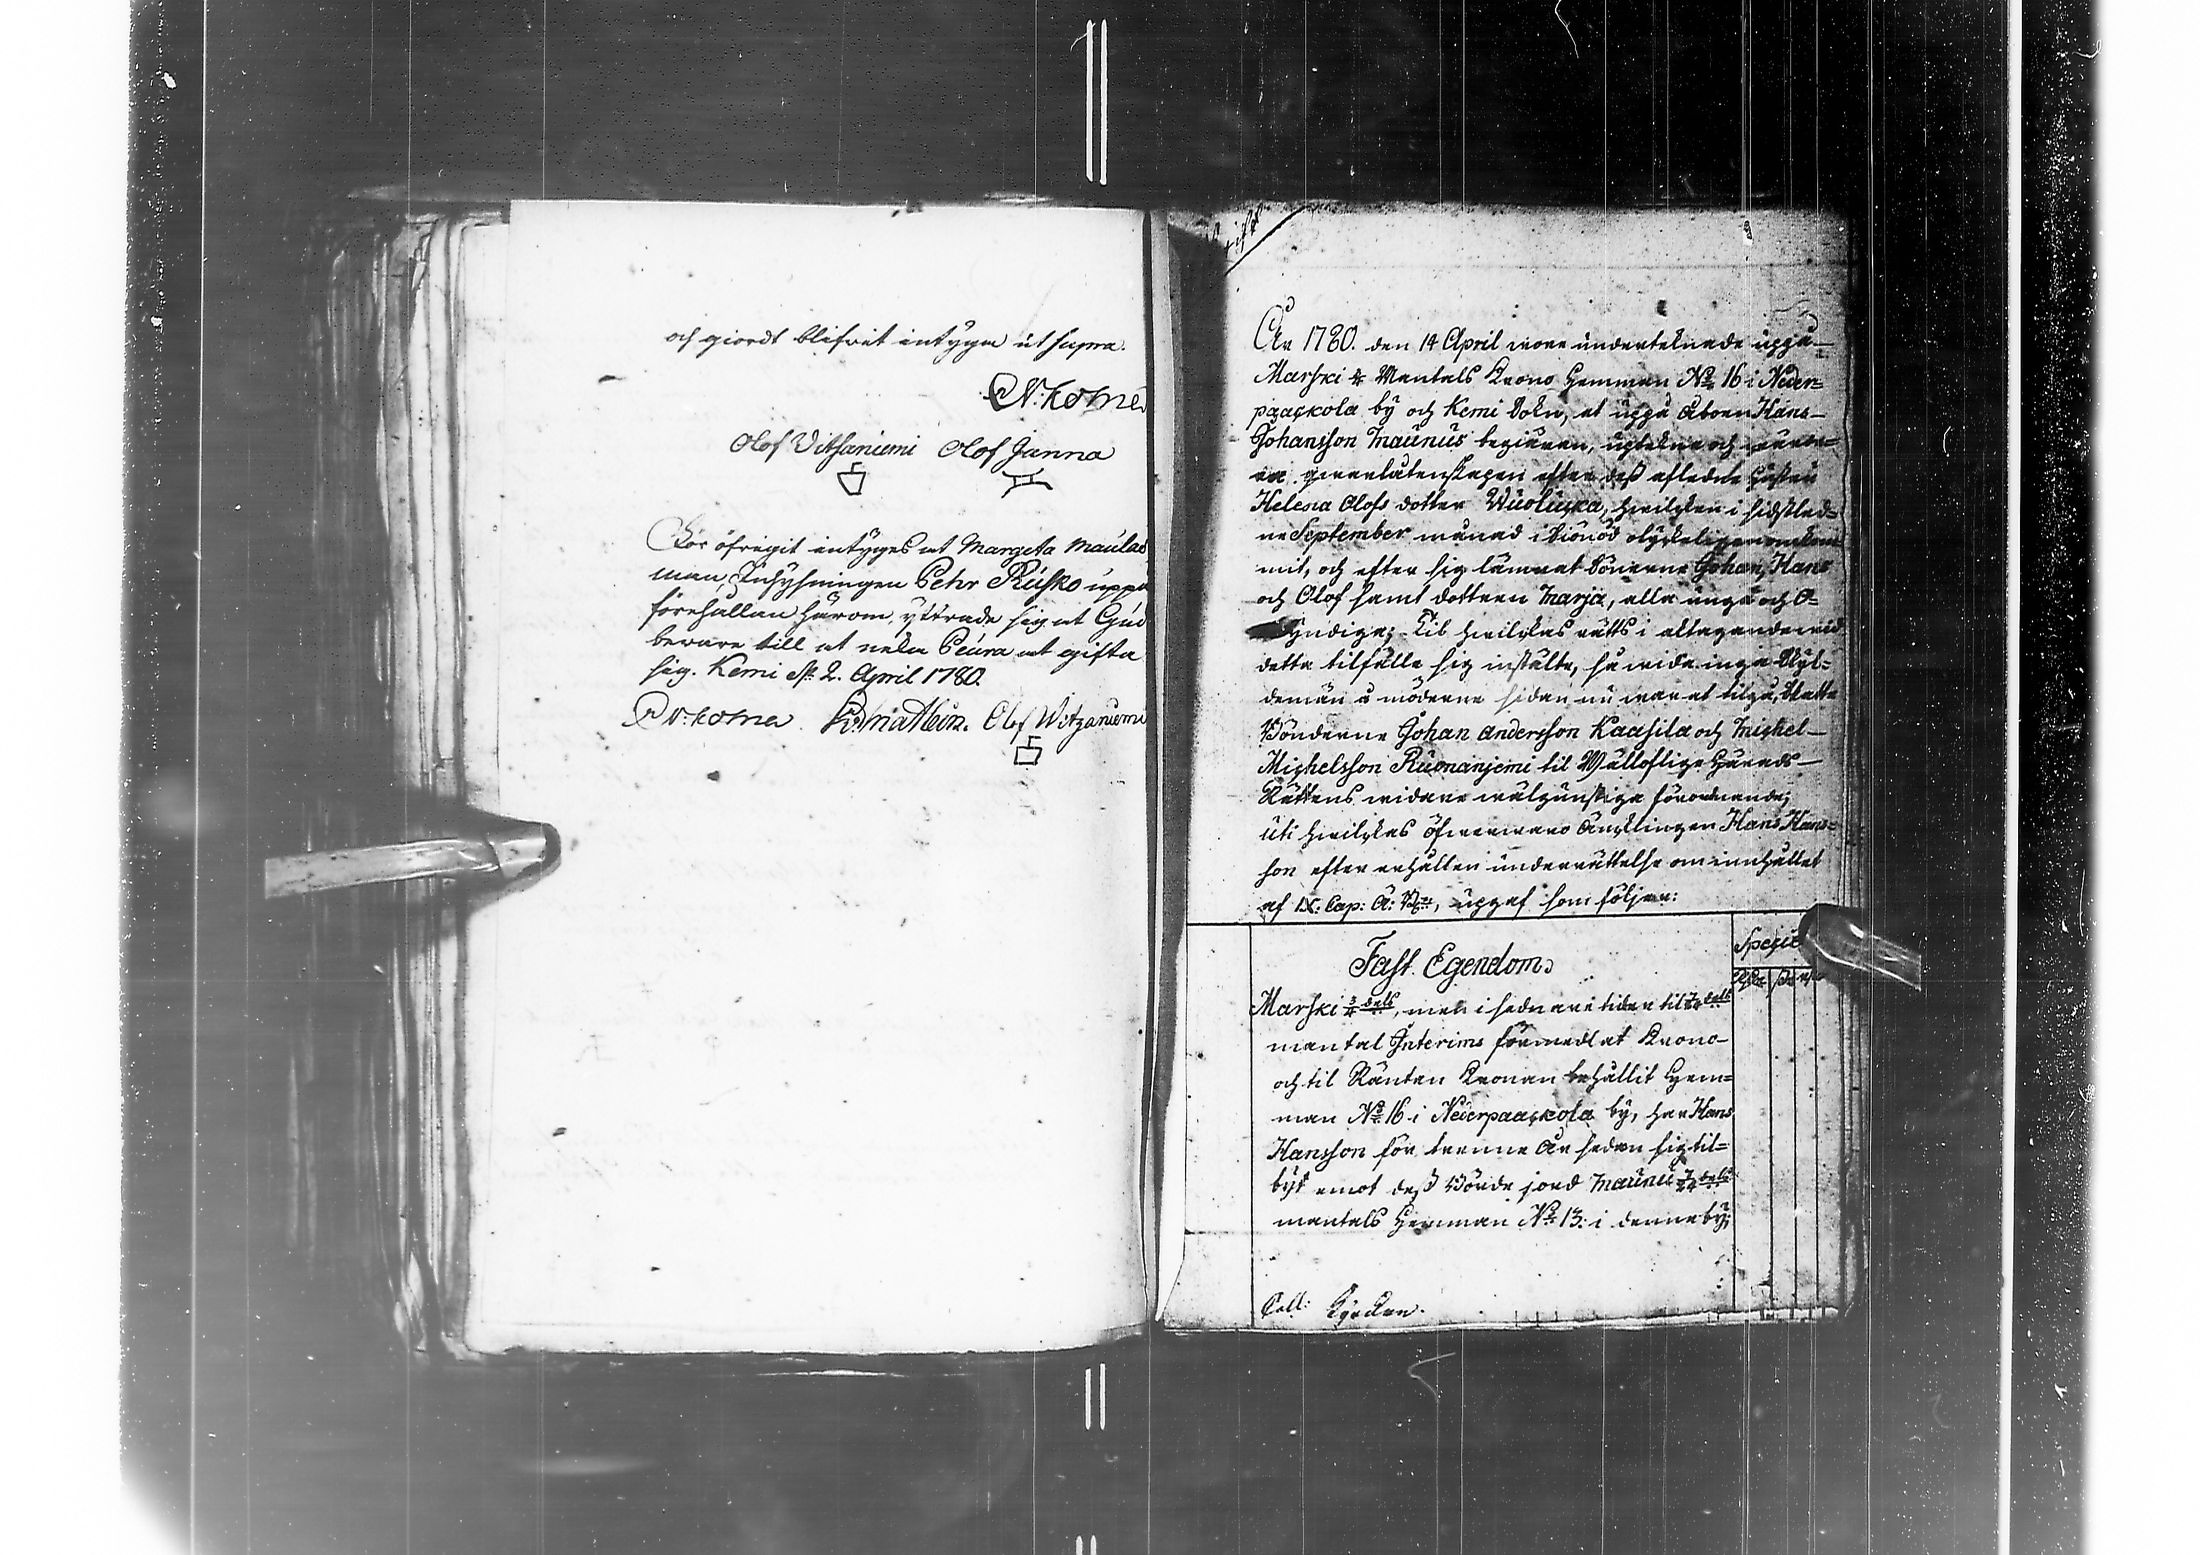 och giordt blifvit intyga ut supra.
Olof Vitsaniemi Olof Janna
För öfrigit intyges at Margeta Maula
man, Inhysningen Pehr Rusko uppå
förehållan härom, yttrade sig at Gud
bevare till at neka Peura at gifta
sig. Kemi d. 2. April 1780.
Olof Witzaniemi
År 1780. den 14 April wore undertecknade uppå
Marski 3/4 Mantals Krono Hemman No 16 i Neder-
paackola by och Kemi Sokn, at uppå Åboen Hans
Johansson Maunus begiären, upteckna och wärde-
ra qwarlåtenskapen efter dess afledne Hustru
Helena Olofs dotter Wuolucka, hwilcken i sidstled-
ne September månad i Siönöd olyckeligen omkom-
mit, och efter sig lämnat Sönerne Johan, Hans
och Olof samt dottren Marja, alla unga och O-
myndige; Til hwilckas rätts i akttagande wid
detta tilfälle sig instälte, så wida inga Skyl-
demän å möderne sidan nu war at tilgå, Skatte
Bönderne Johan Andersson Kaasila och Michel
Michelsson Ruonanjemi til Wälloflige Härads
Rättens widare wälgunstiga förordnande;
uti hwilckas öfwerwaro Änklingen Hans Hans-
son efter erhållen underrättelse om innehållet
af IX: Cap: Ä: B:, upgaf som följer:
Fast Egendom.
Specie
Marski 3/4 dels, men i sednare tider til dels
mantal Interims förmedlat Krono
och til Räntan Kronan behållit Hem-
man No 16 i Nederpaackola by, har Hans
Hansson för trenne År sedan sig til-
bytt emot dess Börde jord Maunu dels
mantals Hemman No 13. i denne by;